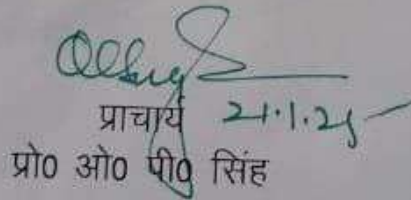 प्राचार्य 21.1.25
प्रो0 ओ0 पी0 सिंह